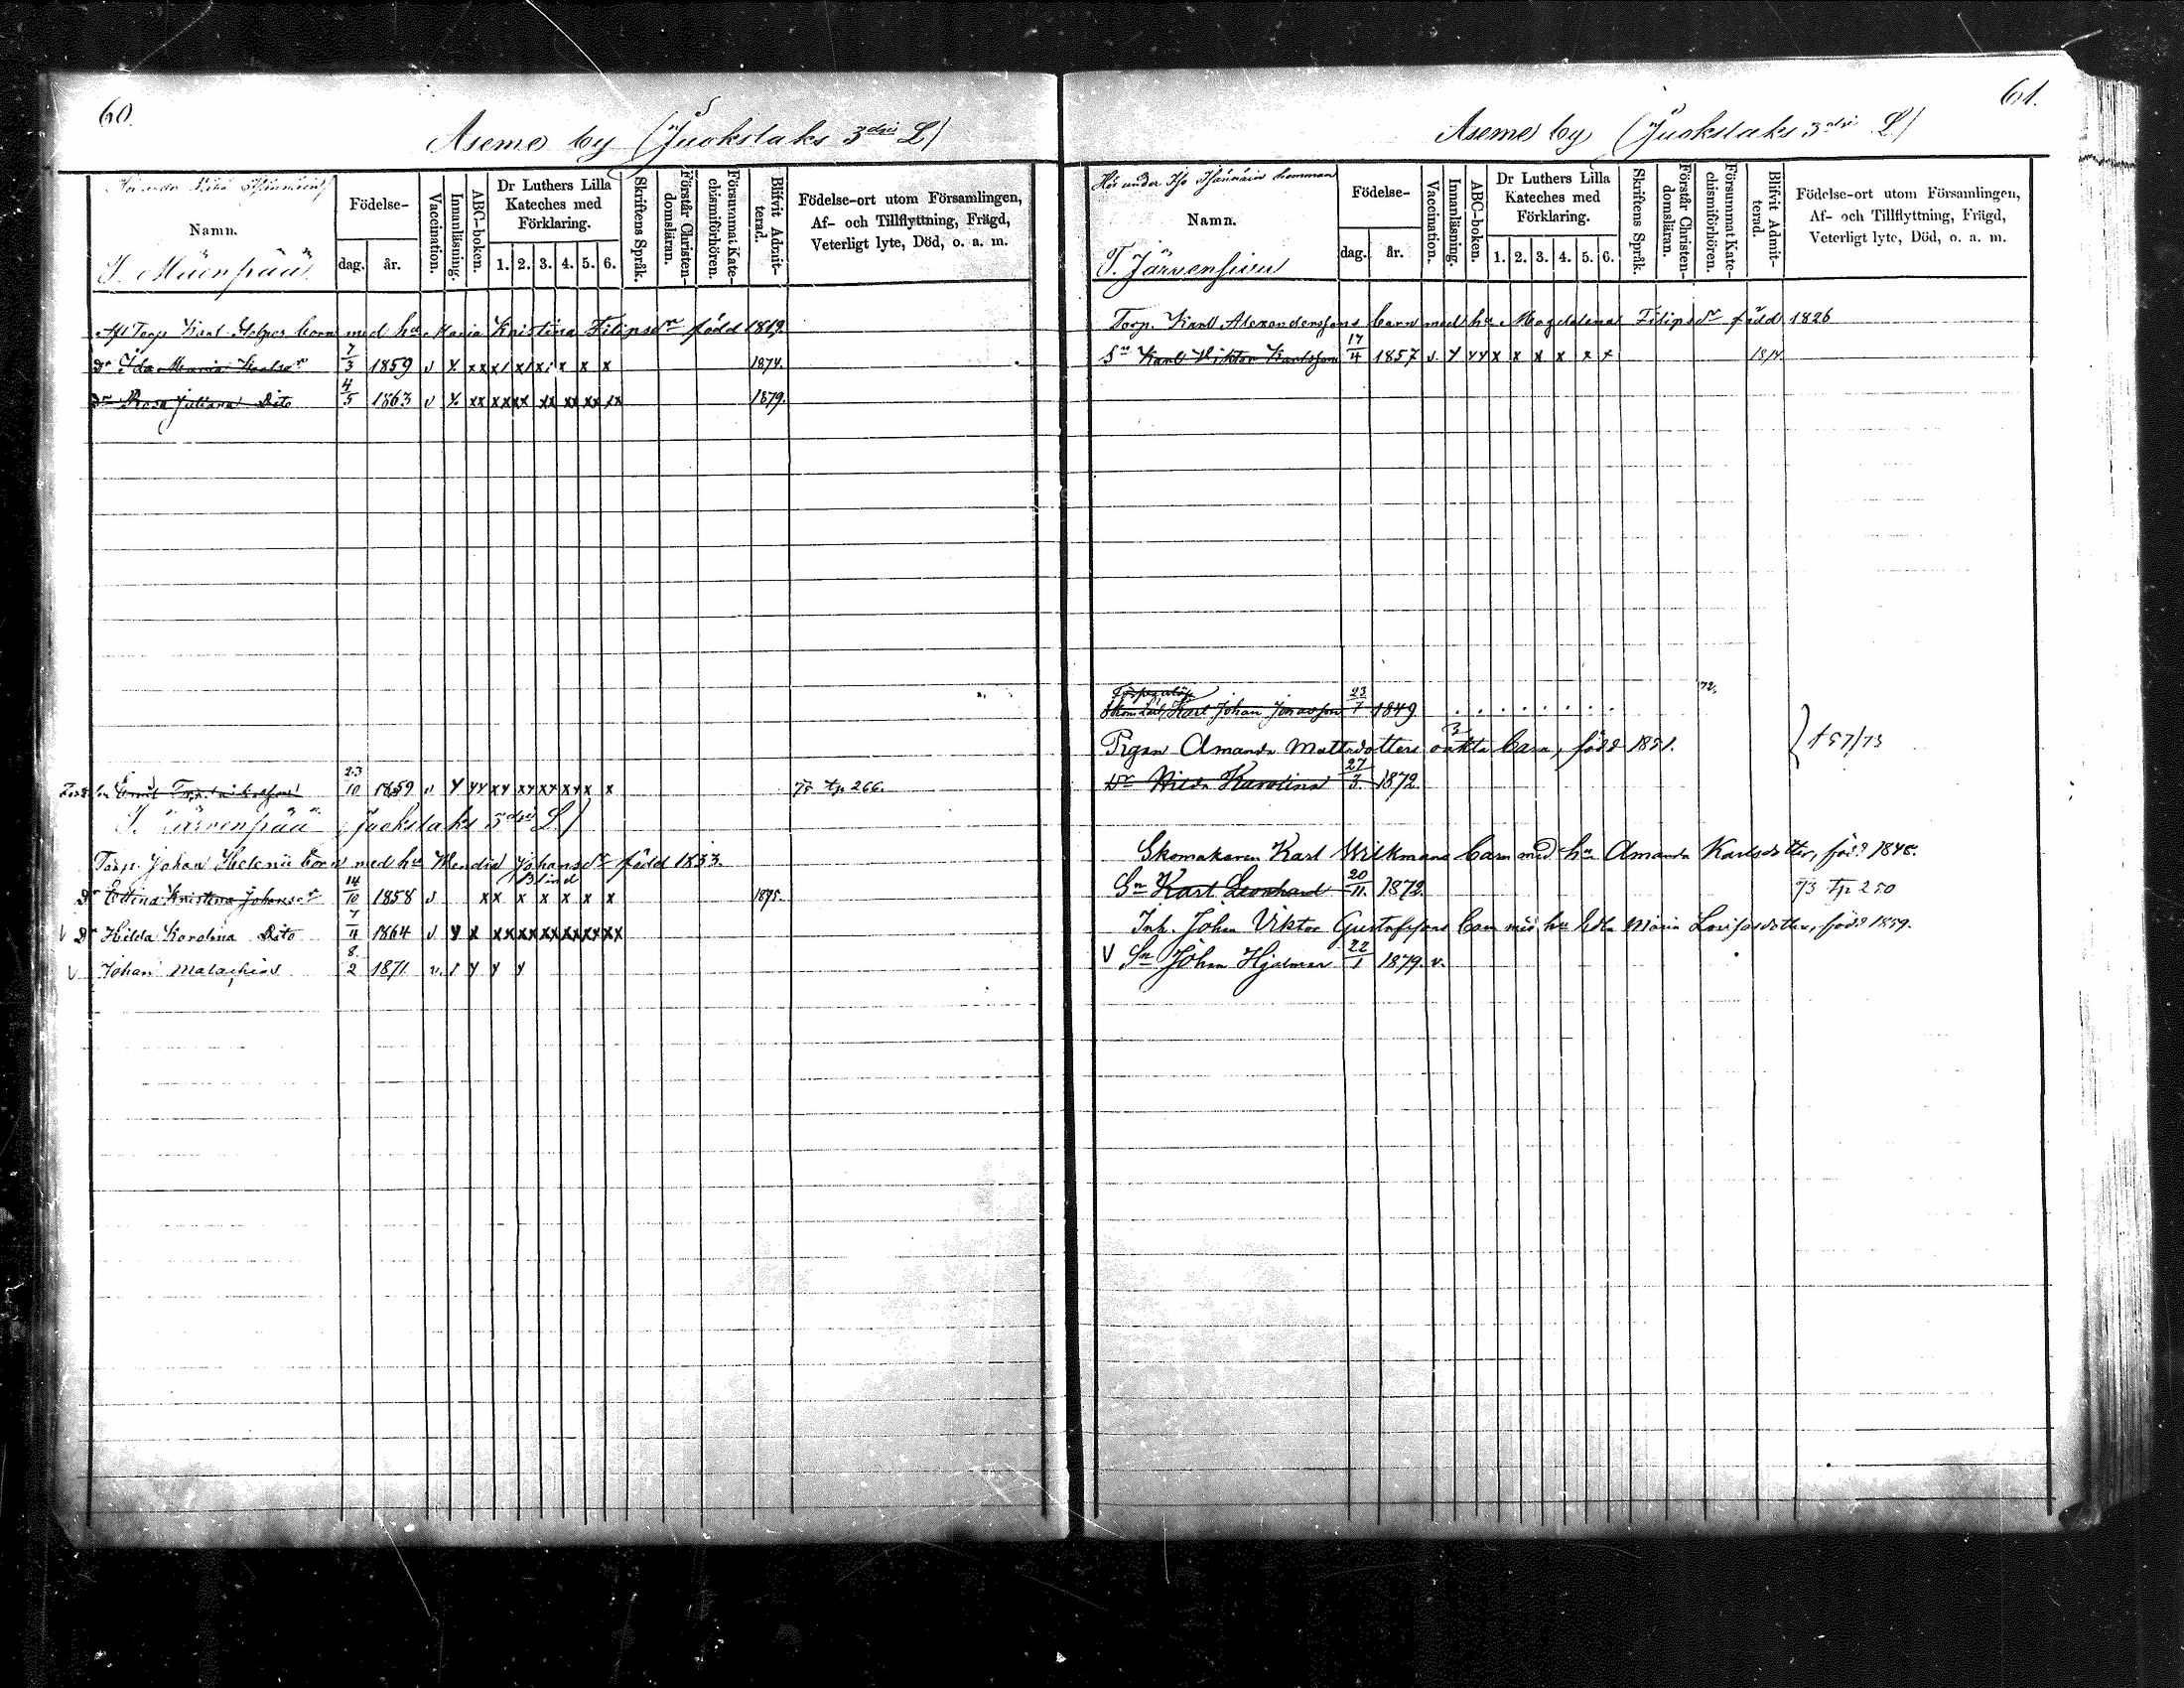 60.
Aseme by (Juokslaks 3die L)
Namn.
Födelse-
dag.
år.
Vaccination.
Innanläsning.
ABC-boken.
Dr Luthers Lilla Kateches med Förklaring.
1. 2. 3. 4. 5. 6.
Skriftens Språk.
Förstår Christendomsläran.
Försummat Katechismiförhören.
Blifvit Admitterad.
Födelse-ort utom Församlingen, Af- och Tillflyttning, Frägd, Veterligt lyte, Död, o. a. m.
T. Mäenpää
Afl Torp Karl barn med hu Maria Kristina Filipsdr född 1819
Dr Ida Maria Karlsdr 7/3 1859 v x xx x/ x/ x/ x x x 1874.
Dr Rosa Juliana Dito 4/5 1863 v x xx xx xx xx xx xx xx 1879.
Emil 23/10 1859 v y yy xy xy xy xx x x 75 tp 266.
T. Järvenpää (Juokslaks 3die L)
Torp. Johan barn med hu Wendla Johansdr född 1833.
Blind
Dr Edina Kristina Johansdr 14/10 1858 v xx x x x x x x 1875.
V Dr Hilda Karolina Dito 7/11 1864 v y x xx xx xx xx xx xx
V Johan Malachias 8/2 1871. v. / y y y
61.
Aseme by (Juokslaks 3die L)
Hör under Iso hemman
Namn.
Födelse-
dag.
år.
Vaccination.
Innanläsning.
ABC-boken.
Dr Luthers Lilla Kateches med Förklaring.
1. 2. 3. 4. 5. 6.
Skriftens Språk.
Förstår Christendomsläran.
Försummat Katechismiförhören.
Blifvit Admitterad.
Födelse-ort utom Församlingen, Af- och Tillflyttning, Frägd, Veterligt lyte, Död, o. a. m.
T. Järvensivu
Torp. Karl Alexanderssons barn med hu Magdalena Filipsdr född 1826
Sn Karl Viktor Karlsson 17/4 1857 v. y yy x x x x x x
Karl Johan Jonasson 23/1 1849 . . . . . . . . 72.
Pigan Amanda Mattsdotters oäkta barn, född 1851.
Dr Hilda Karolina 27/3. 1872.
Skomakaren Karl Wilkmans barn med hu Amanda Karlsdotter, född 1848.
Sn Karl Leonhard 20/11. 1872. 73 tp 250
Inh. Johan Viktor Gustafssons barn med hu Edla Maria Lovisasdotter, född 1859.
V Sn Johan Hjalmar 22/1 1879. v.